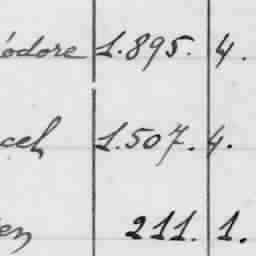 éodore 1.895. 4.
cel 1.507. 4.
en 211. 1.